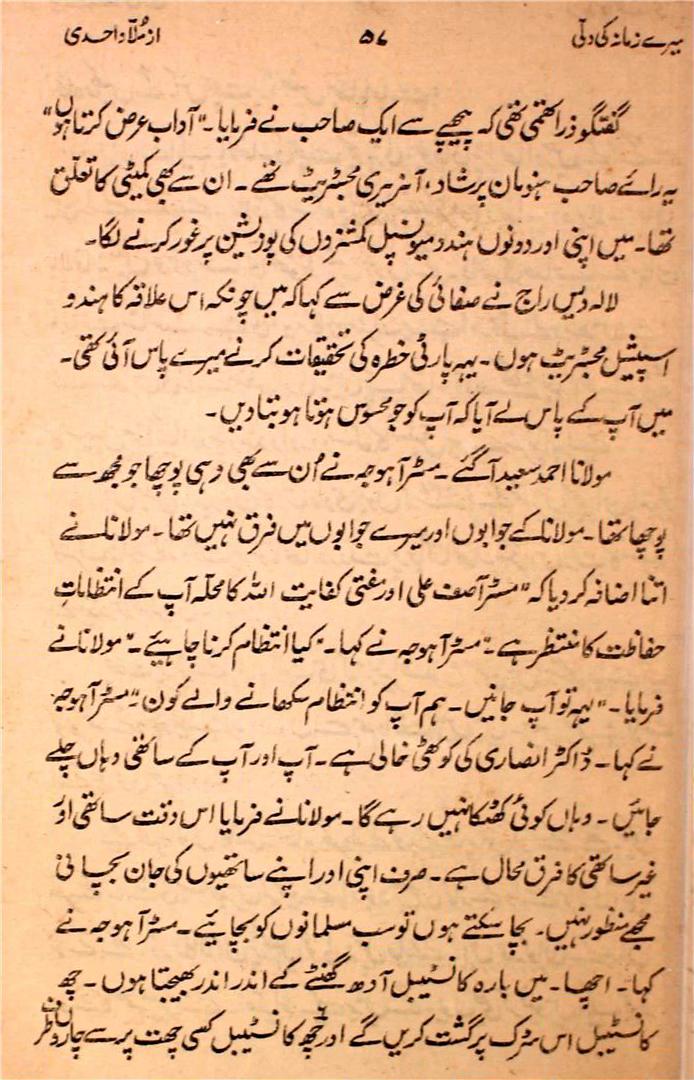 میرے زمانہ کی دلّی ۵۷ از مُلّا واحدی
گفتگو ذرا تھمی تھی کہ پیچھے سے ایک صاحب نے فرمایا۔ "آداب عرض کرتا ہوں"
یہ رائے صاحب ہنومان پرشاد، آنریری مجسٹریٹ تھے۔ ان سے بھی کمیٹی کا تعلّق
تھا۔ میں اپنی اور دونوں ہندو میونسپل کمشنروں کی پوزیشن پر غور کرنے لگا۔
لالہ دیس راج نے صفائی کی غرض سے کہا کہ میں چونکہ اس علاقہ کا ہندو
اسپیشل مجسٹریٹ ہوں۔ یہہ پارٹی خطرہ کی تحقیقات کرنے میرے پاس آئی تھی۔
میں آپ کے پاس لے آیا کہ آپ کو جو محسوس ہوتا ہو بتادیں۔
مولانا احمد سعید آگئے۔ مسٹر آہوجہ نے اُن سے بھی وہی پوچھا جو مجھ سے
پوچھا تھا۔ مولانا کے جوابوں اور میرے جوابوں میں فرق نہیں تھا۔ مولانا نے
اتنا اضافہ کردیا کہ "مسٹر آصف علی اور مفتی کفایت اللہ کا محلّہ آپ کے انتظاماتِ
حفاظت کا منتظر ہے۔" مسٹر آہوجہ نے کہا۔ "کیا انتظام کرنا چاہیئے۔" مولانا نے
فرمایا۔ "یہہ تو آپ جانیں۔ ہم آپ کو انتظام سکھانے والے کون۔" مسٹر آہوجہ
نے کہا۔ ڈاکٹر انصاری کی کوٹھی خالی ہے۔ آپ اور آپ کے ساتھی وہاں چلے
جائیں۔ وہاں کوئی کھٹکا نہیں رہے گا۔ مولانا نے فرمایا اس وقت ساتھی اور
غیر ساتھی کا فرق محال ہے۔ صرف اپنی اور اپنے ساتھیوں کی جان بچانی
مجھے منظور نہیں۔ بچا سکتے ہوں تو سب مسلمانوں کو بچائیے۔ مسٹر آہوجہ نے
کہا۔ اچھا۔ میں بارہ کانسٹیبل آدھ گھنٹے کے اندر اندر بھیجتا ہوں۔ چھ
کانسٹیبل اس سڑک پر گشت کریں گے اور چھ کانسٹیبل کسی چھت پر سے چاروں طرف